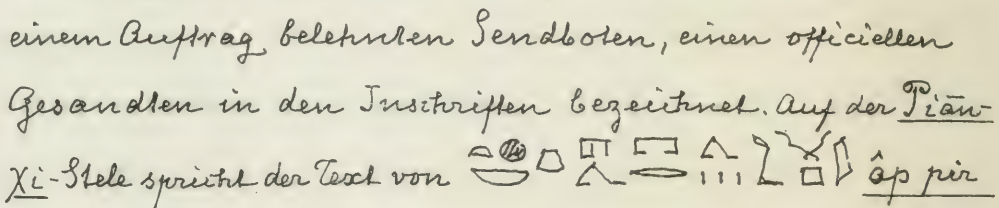 einem Auftrag belehnten Sendboten, einen officiellen
Gesandten in den Inschriften bezeichnet. Auf der Piān-
χi-Stele spricht der Text von âp pir